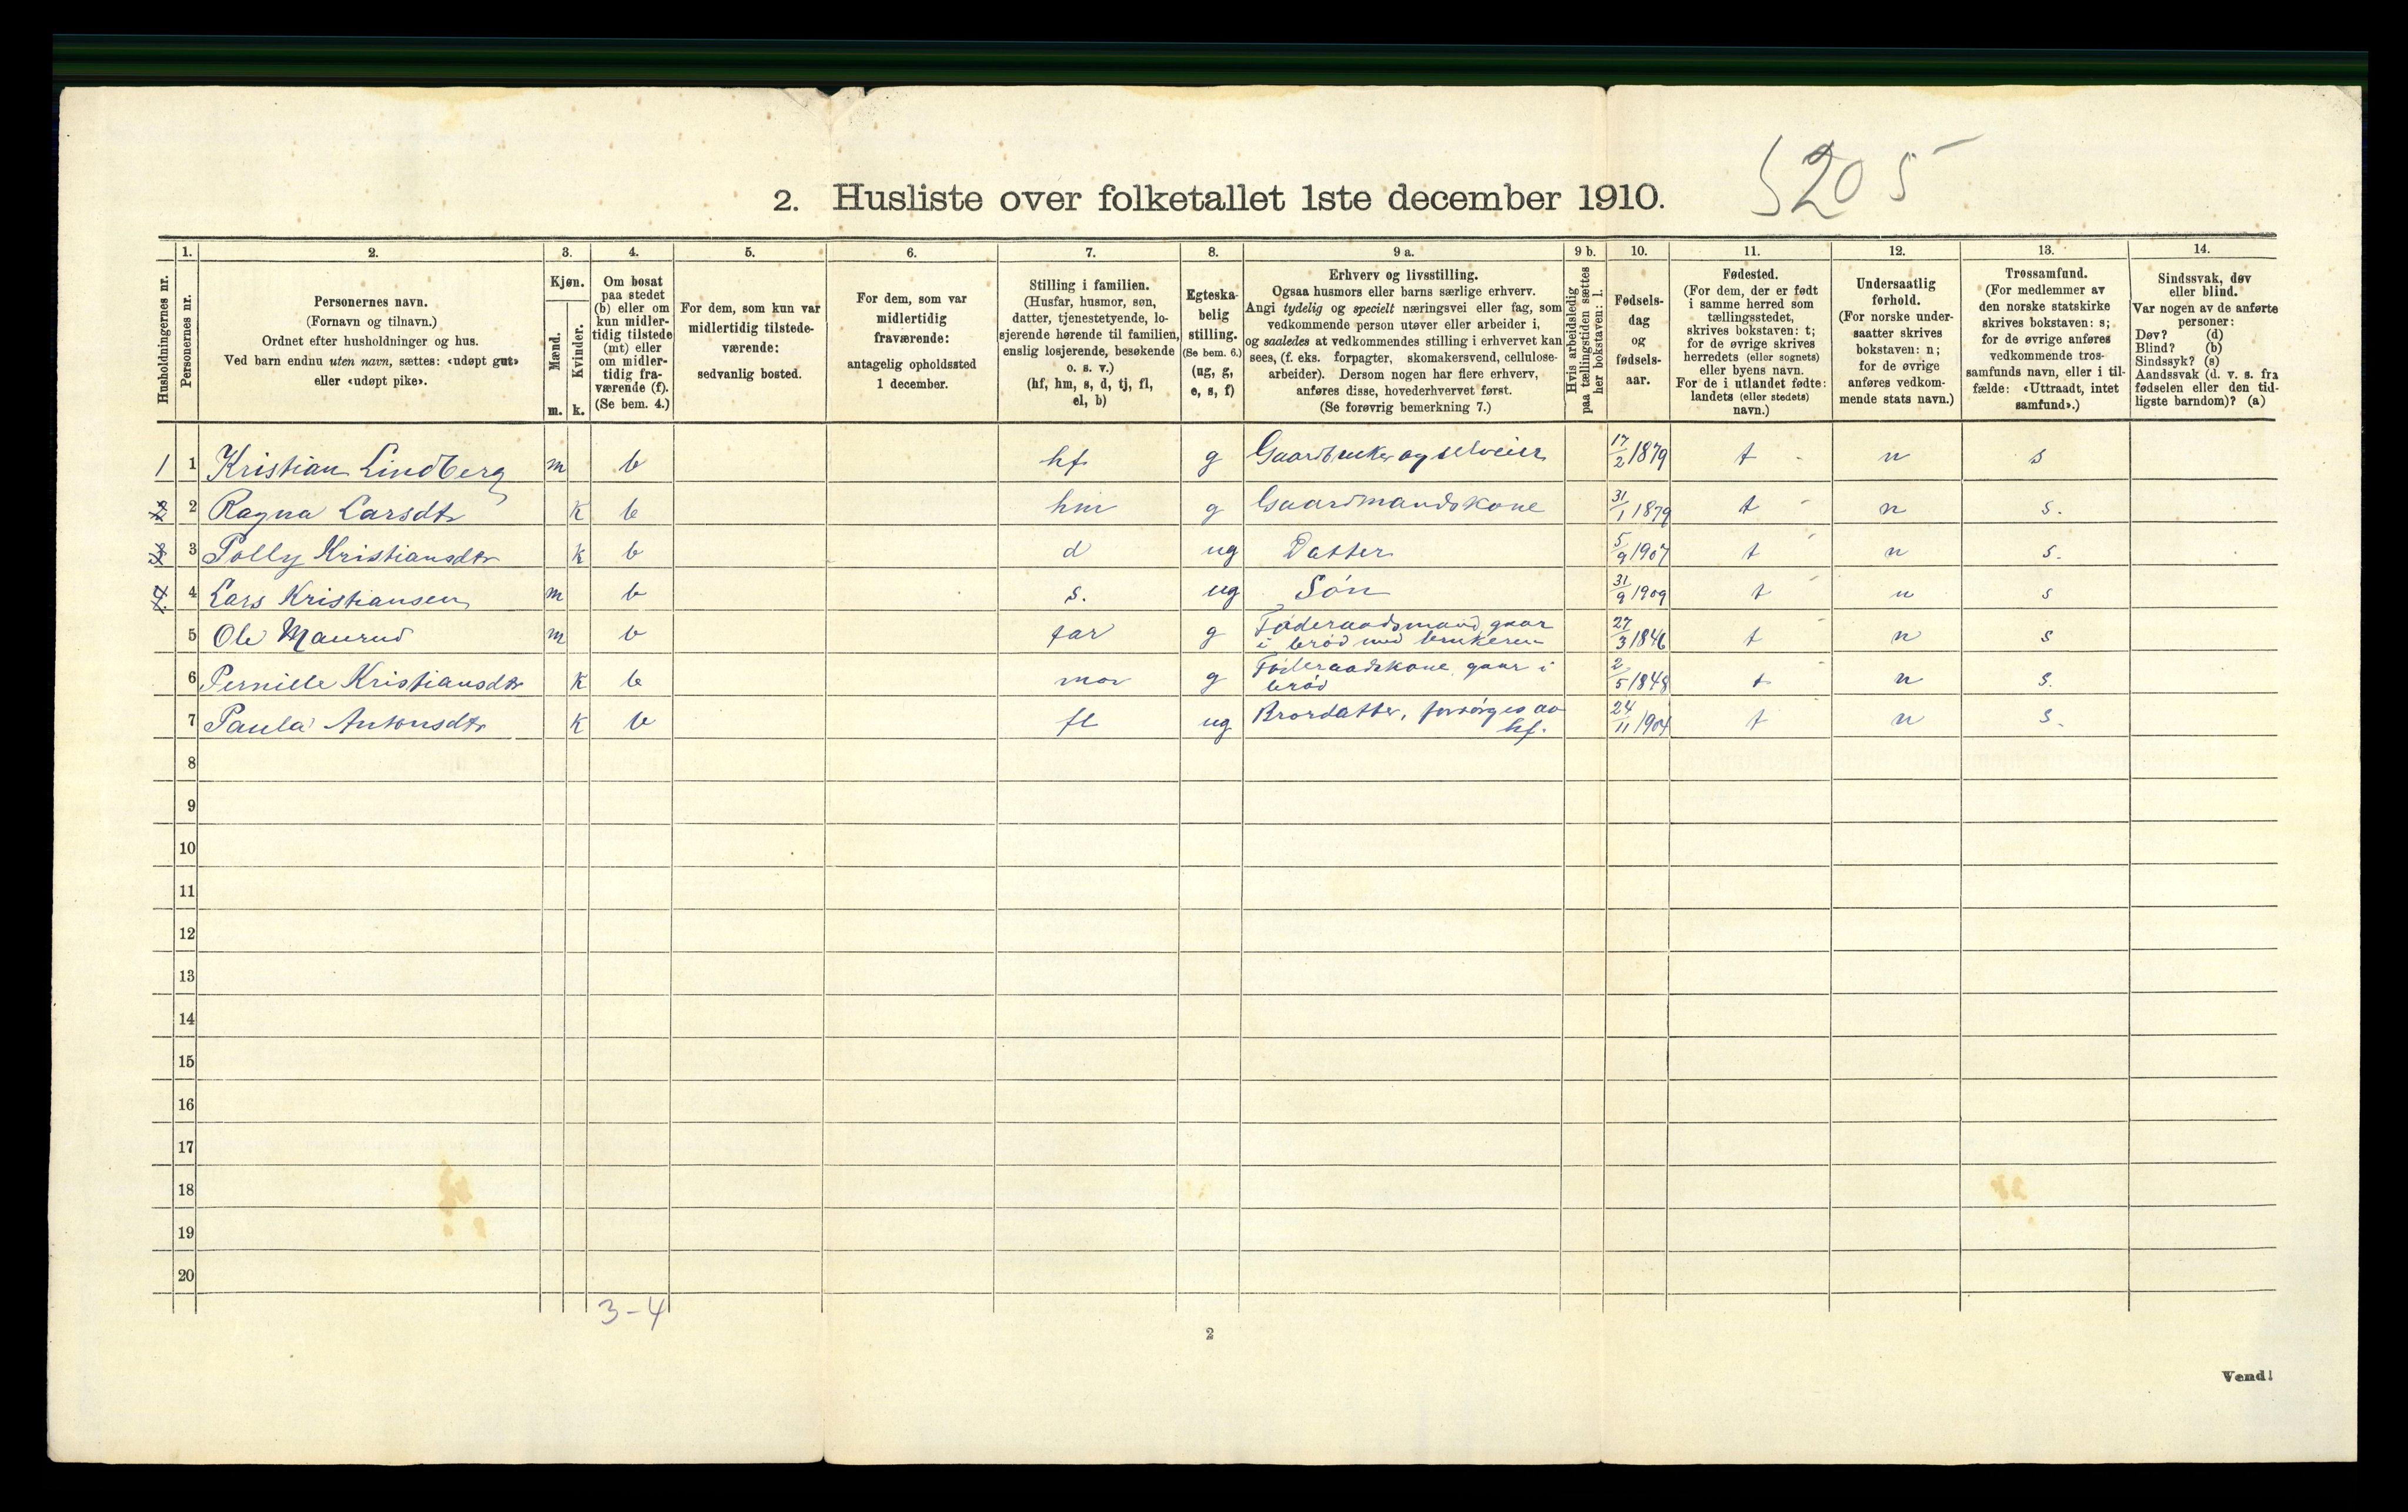 5205
2. Husliste over folketallet 1ste december 1910.
Husholdningernes nr.
1.
Personernes nr.
2.
Personernes navn.
(Fornavn og tilnavn.)
Ordnet efter husholdninger og hus.
Ved barn endnu uten navn, sættes: «udøpt gut»
eller «udøpt pike».
3.
Kjøn.
Mænd.
m.
Kvinder.
k.
4.
Om bosat
paa stedet
(b) eller om
kun midler-
tidig tilstede
(mt) eller
om midler-
tidig fra-
værende (f).
(Se bem. 4.)
5.
For dem, som kun var
midlertidig tilstede-
værende:
sedvanlig bosted.
6.
For dem, som var
midlertidig
fraværende:
antagelig opholdssted
1 december.
7.
Stilling i familien.
(Husfar, husmor, søn,
datter, tjenestetyende, lo-
sjerende hørende til familien,
enslig losjerende, besøkende
o. s. v.)
(hf, hm, s, d, tj, fl,
el, b)
8.
Egteska-
belig
stilling.
(Se bem. 6.)
(ug, g,
e, s, f)
9 a.
Erhverv og livsstilling.
Ogsaa husmors eller barns særlige erhverv.
Angi tydelig og specielt næringsvei eller fag, som
vedkommende person utøver eller arbeider i,
og saaledes at vedkommendes stilling i erhvervet kan
sees, (f. eks. forpagter, skomakersvend, cellulose-
arbeider). Dersom nogen har flere erhverv,
anføres disse, hovederhvervet først.
(Se forøvrig bemerkning 7.)
9 b.
Hvis arbeidsledig
paa tællingstiden sættes
her bokstaven: l.
10.
Fødsels-
dag
og
fødsels-
aar.
11.
Fødested.
(For dem, der er født
i samme herred som
tællingsstedet,
skrives bokstaven: t;
for de øvrige skrives
herredets (eller sognets)
eller byens navn.
For de i utlandet fødte:
landets (eller stedets)
navn.)
12.
Undersaatlig
forhold.
(For norske under-
saatter skrives
bokstaven: n;
for de øvrige
anføres vedkom-
mende stats navn.)
13.
Trossamfund.
(For medlemmer av
den norske statskirke
skrives bokstaven: s;
for de øvrige anføres
vedkommende tros-
samfunds navn, eller i til-
fælde: «Uttraadt, intet
samfund».)
14.
Sindssvak, døv
eller blind.
Var nogen av de anførte
personer:
Døv? (d)
Blind? (b)
Sindssyk? (s)
Aandssvak (d. v. s. fra
fødselen eller den tid-
ligste barndom)? (a)
1 1 Kristian Lindberg m b hf g Gaardbruker og selveier 17/2 1879 t n s
2 2 Ragna Larsdtr k b hm g Gaardmandskone 31/1 1879 t n s.
3 3 Polly Kristiansdtr k b d ug Datter 5/9 1907 t n s.
4 4 Lars Kristiansen m b s. ug Søn 31/9 1909 t n s
5 Ole Maurud m b far g Føderaadsmand gaar
i brød med brukeren 27/3 1846 t n s
6 Pernille Kristiansdtr k b mor g Føderaadskone gaar i
brød 2/5 1848 t n s.
7 Paula Antonsdtr k b fl ug Brordatter, forsørges av
hf. 24/11 1904 t n s.
8
9
10
11
12
13
14
15
16
17
18
19
20
3-4
2
Vend!